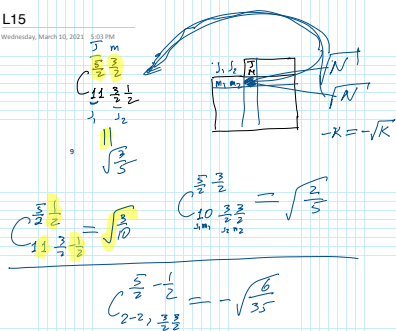 L15
Wednesday, March 10, 2021 5:03 PM
J m
C 5/2 3/2 11 3/2 1/2
j₁ j₂
|| √3/5
j₁ j₂ J M
m₁ m₂
√N
√N
-K = -√K
C 5/2 1/2 11 3/2 -1/2 = √3/10
C 5/2 3/2 10 3/2 3/2 = √2/5
j₁m₁ j₂m₂
C 5/2 -1/2 2-2, 3/2 3/2 = -√6/35